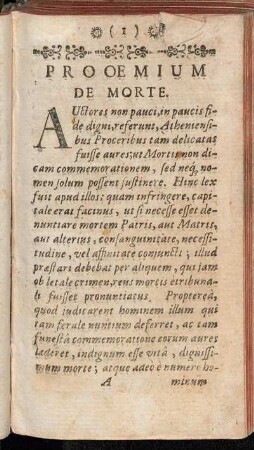 ( I )
PROOEMIUM
DE MORTE.
AUctores non pauci, in paucis fi-
de digni, referunt, Atheniensi-
bus Proceribus tam delicatas
fuisse aures, ut Mortis non di-
cam commemorationem, sed neq́; no-
men solum possent sustinere. Hinc lex
fuit apud illos, quam infringere, capi-
tale erat facinus, ut si necesse esset de-
nuntiare mortem Patris, aut Matris,
aut alterius, consanguinitate, necessi-
tudine, vel affinitate conjuncti; illud
præstari debebat per aliquem, qui jam
ob letale crimen, reus mortis è tribuna-
li fuisset pronuntiatus. Proptereà,
quod judicarent hominem illum qui
tam ferale nuntium deferret, ac tam
funestâ commemoratione eorum aures
læderet, indignum esse vitâ, dignissi-
mum morte; atque adeò è numero ho-
A minum